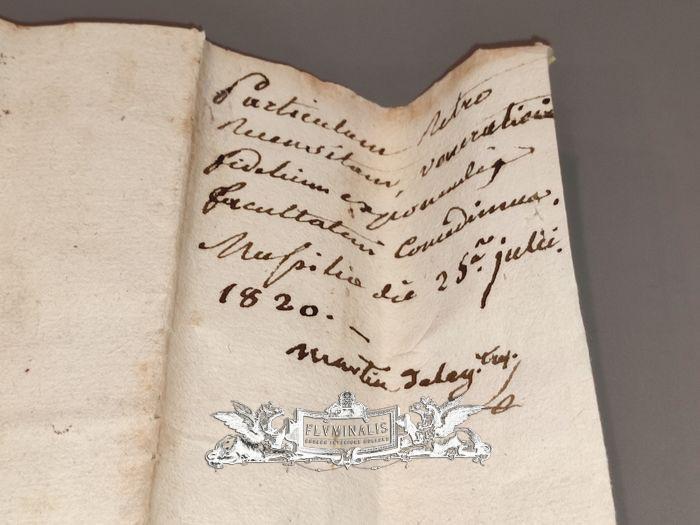 Particulam retro
recensitam, veneratione
fidelium exponendi
facultatem concedimus.
Massiliae die 25â julii.
1820. —
Martin
FLVMINALIS